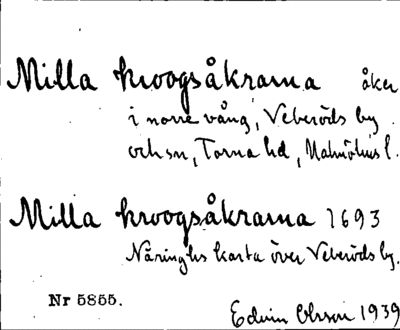 Milla kroogsåkrarna åker
i norre vång, Veberöds by
och sn, Torna hd, Malmöhus l.
Milla kroogsåkrarna 1693
Näringhs karta över Veberöds by.
Nr 5855.
Edvin Ohlsson 1939